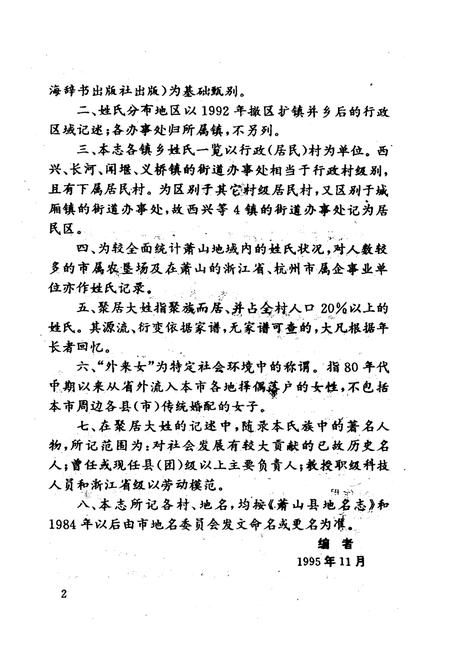 海辞书出版社出版)为基础甄别。
二、姓氏分布地区以1992年撤区扩镇并乡后的行政
区域记述;各办事处归所属镇,不另列。
三、本志各镇乡姓氏一览以行政(居民)村为单位。西
兴、长河、闻堰、义桥镇的街道办事处相当于行政村级别,
且有下属居民村。为区别于其它村级居民村,又区别于城
厢镇的街道办事处,故西兴等4镇的街道办事处记为居
民区。
四、为较全面统计萧山地域内的姓氏状况,对人数较
多的市属农垦场及在萧山的浙江省、杭州市属企事业单
位亦作姓氏记录。
五、聚居大姓指聚族而居、并占全村人口20%以上的
姓氏。其源流、衍变依据家谱,无家谱可查的,大凡根据年
长者回忆。
六、“外来女”为特定社会环境中的称谓。指80年代
中期以来从省外流入本市各地择偶落户的女性,不包括
本市周边各县(市)传统婚配的女子。
七、在聚居大姓的记述中,随录本氏族中的著名人
物,所记范围为:对社会发展有较大贡献的已故历史名
人;曾任或现任县(团)级以上主要负责人;教授职级科技
人员和浙江省级以劳动模范。
八、本志所记各村、地名,均按《萧山县地名志》和
1984年以后由市地名委员会发文命名或更名为准。
编者
1995年11月
2